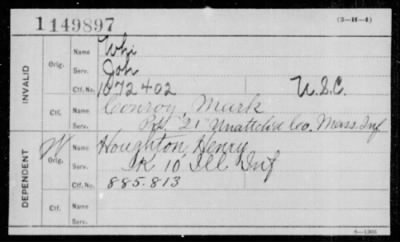 1149897
(3-H-4)
INVALID
Orig.
Name Whi
Serv. Joh
Ctf. No. 1072402 U.S.C.
Ctf.
Name Conroy, Mark
Serv. Pvt "21" Unattchd Co. Mass. Inf
DEPENDENT
W
Orig.
Name Houghton, Henry
Serv. K 10" Ill Inf
Ctf. No. 885.813
Ctf.
Name
Serv.